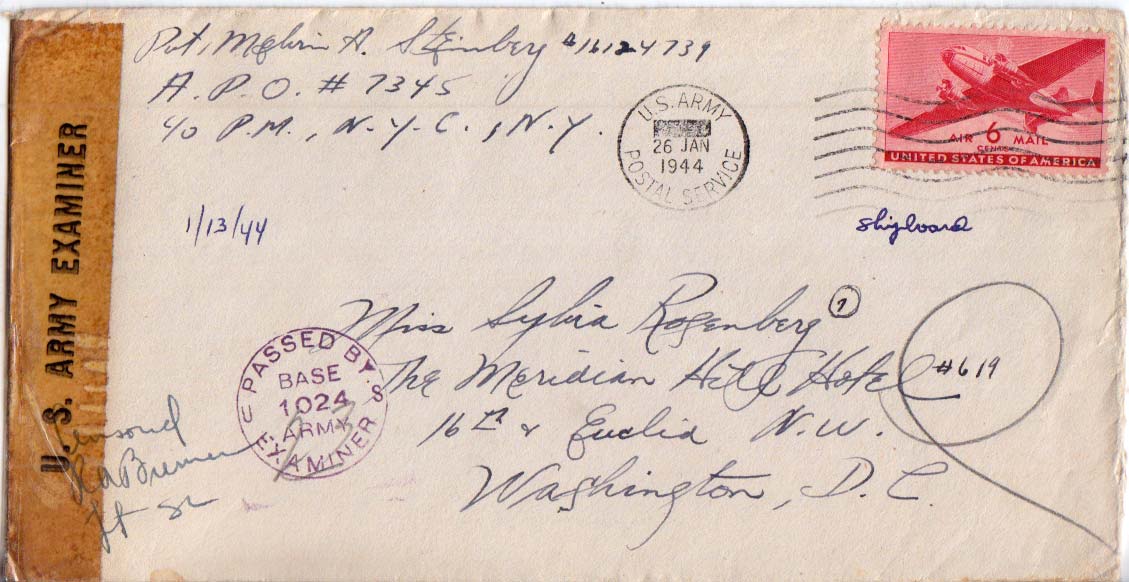 Pvt. Melvin A. Steinberg #16124739
A.P.O. # 7345
c/o P.M., N.Y.C., N.Y.
U.S. ARMY
26 JAN
1944
POSTAL SERVICE
AIR 6 MAIL
CENTS
UNITED STATES OF AMERICA
1/13/44
shipboard
U.S. ARMY EXAMINER
Miss Sylvia Rosenberg
7
The Meridian Hill Hotel #619
16th & Euclid N.W.
Washington, D.C.
PASSED BY
BASE
1024
ARMY
EXAMINER
U S
Censored